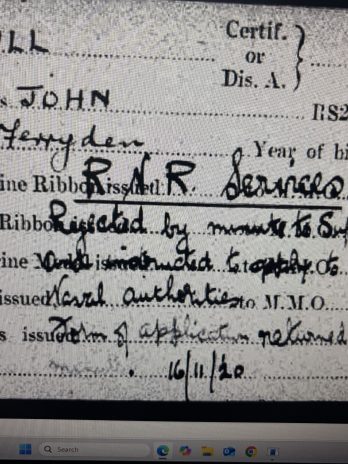 ILL Certif.
or
Dis. A.
s JOHN RS2
Ferryden Year of bi
ine Ribbon issued R.N.R. Services
Ribbo Rejected by minute to Su
ine M and is instructed to apply to
issued Naval authorities to M.M.O.
s issued Form of application returned
16/11/20
Search